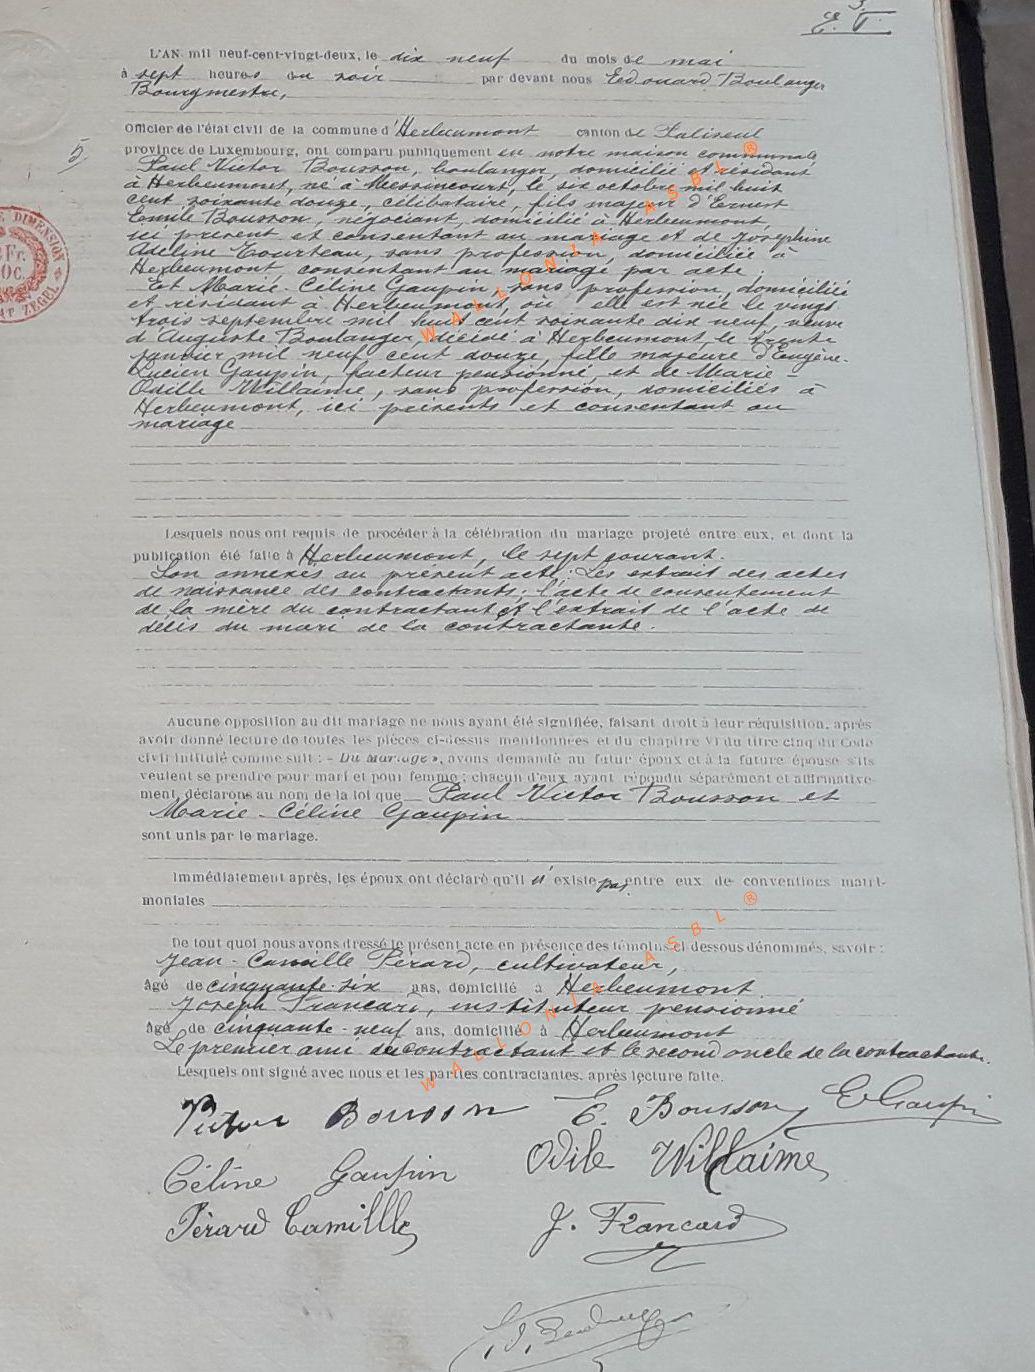 E. T.
L'AN mil neuf-cent-vingt-deux, le dix neuf du mois de mai
à sept heures du soir par devant nous Edouard Boulanger
Bourgmestre,
Officier de l'état civil de la commune d'Herbeumont canton de Paliseul
5,
province de Luxembourg, ont comparu publiquement en notre maison communale
Paul Victor Bousson, boulanger, domicilié et résidant
à Herbeumont, né à Messincourt, le six octobre mil huit
cent soixante douze, célibataire, fils majeur d'Ernest
Emile Bousson, négociant, domicilié à Herbeumont,
ici présent et consentant au mariage et de Joséphine
Adeline Tourteau, sans profession, domiciliée à
Herbeumont, consentant au mariage par acte.
Et Marie-Céline Gaupin, sans profession, domiciliée
et résidant à Herbeumont, où elle est née le vingt
trois septembre mil huit cent soixante dix neuf, veuve
d'Auguste Boulanger, décédé à Herbeumont, le trente
janvier mil neuf cent douze, fille majeure d'Eugène-
Lucien Gaupin, facteur pensionné et de Marie-
Odille Willaime, sans profession, domiciliés à
Herbeumont, ici présents et consentant au
mariage
Lesquels nous ont requis de procéder à la célébration du mariage projeté entre eux, et dont la
publication été faite à Herbeumont, le sept courant.
Son annexés au présent acte: Les extrait des actes
de naissance des contractants; l'acte de consentement
de la mère du contractant & l'extrait de l'acte de
décès du mari de la contractante.
Aucune opposition au dit mariage ne nous ayant été signifiée, faisant droit à leur réquisition, après
avoir donné lecture de toutes les pièces ci-dessus mentionnées et du chapitre VI du titre cinq du Code
civil intitulé comme suit : « Du Mariage », avons demandé au futur époux et à la future épouse s'ils
veulent se prendre pour mari et pour femme ; chacun d'eux ayant répondu séparément et affirmative-
ment, déclarons au nom de la loi que Paul Victor Bousson et
Marie-Céline Gaupin
sont unis par le mariage.
Immédiatement après, les époux ont déclaré qu'il n'existe pas entre eux de conventions matri-
moniales
De tout quoi nous avons dressé le présent acte en présence des témoins ci dessous dénommés, savoir :
Jean-Camille Pérard, cultivateur,
âgé de cinquante-six ans, domicilié à Herbeumont
Joseph Francard, instituteur pensionné
âgé de cinquante-neuf ans, domicilié à Herbeumont
Le premier ami du contractant et le second oncle de la contractante.
Lesquels ont signé avec nous et les parties contractantes, après lecture faite.
Victor Bousson E. Bousson E Gaupin
Céline Gaupin Odile Willaime
Pérard Camillle J. Francard
WALLONIA ASBL ®
WALLONIA ASBL ®